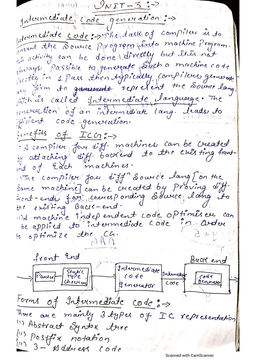 UNIT-3 :→
Intermediate code generation :→
Intermediate Code :→ The task of compiler is to
convert the Source Program into machine Program.
This activity can be done directly but it is not
always Possible to generate such a machine code
directly in 1 Pass then typically compilers generate
any form to represent the Source lang
which is called Intermediate language. The
generation of an intermediate lang. leads to
efficient code generation.
Benefits of ICG :→
A compiler for diff machines can be created
by attaching diff backend to the existing front
end of each machine.
The compiler for diff source lang (on the
same machine) can be created by proving diff
front-ends for corresponding Source lang to
the existing back-end.
machine independent code optimiser can
be applied to intermediate code in order
to optimize the CG.
front End
Back end
Parser
Static type checking
Intermediate code generator
Intermediate code
Code generator
Forms of Intermediate code :→
There are mainly 3 types of IC representation
(i) Abstract Syntax tree
(ii) Postfix notation
(iii) 3-Address code
Scanned with CamScanner